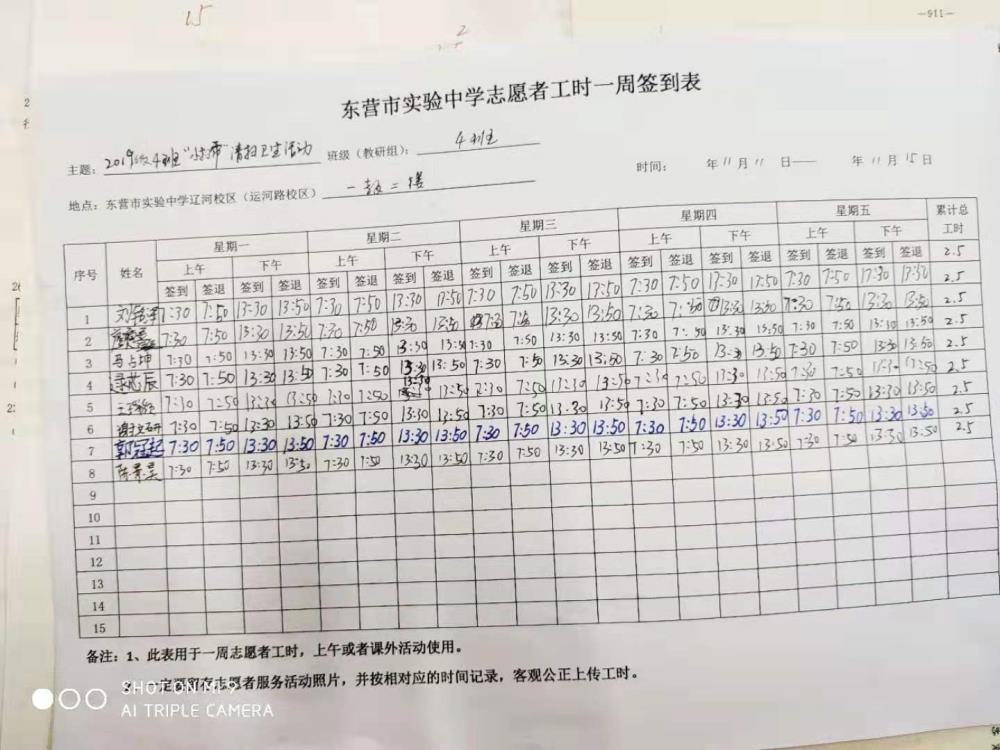 15
2
—911—
东营市实验中学志愿者工时一周签到表
主题： 2019级4班“ ”清扫卫生活动 班级（教研组）： 4班 时间： 年11月11日—— 年11月15日
地点：东营市实验中学辽河校区（运河路校区） 一 二楼
序号 姓名 星期一 星期二 星期三 星期四 星期五 累计总工时
上午 下午 上午 下午 上午 下午 上午 下午 上午 下午
签到 签退 签到 签退 签到 签退 签到 签退 签到 签退 签到 签退 签到 签退 签到 签退 签到 签退 签到 签退 2.5
1 刘 7:30 7:50 13:30 13:50 7:30 7:50 13:30 13:50 7:30 7:50 13:30 13:50 7:30 7:50 13:30 13:50 7:30 7:50 13:30 13:50 2.5
2 7:30 7:50 13:30 13:50 7:30 7:50 13:30 13:50 7:30 7:50 13:30 13:50 7:30 7:50 13:30 13:50 7:30 7:50 13:30 13:50 2.5
3 马占坤 7:30 7:50 13:30 13:50 7:30 7:50 13:30 13:50 7:30 7:50 13:30 13:50 7:30 7:50 13:30 13:50 7:30 7:50 13:30 13:50 2.5
4 辰 7:30 7:50 13:30 13:50 7:30 7:50 13:30 13:50 7:30 7:50 13:30 13:50 7:30 7:50 13:30 13:50 7:30 7:50 13:30 13:50 2.5
5 王 7:30 7:50 13:30 13:50 7:30 7:50 13:30 13:50 7:30 7:50 13:30 13:50 7:30 7:50 13:30 13:50 7:30 7:50 13:30 13:50 2.5
6 谢文研 7:30 7:50 13:30 13:50 7:30 7:50 13:30 13:50 7:30 7:50 13:30 13:50 7:30 7:50 13:30 13:50 7:30 7:50 13:30 13:50 2.5
7 郭冠起 7:30 7:50 13:30 13:50 7:30 7:50 13:30 13:50 7:30 7:50 13:30 13:50 7:30 7:50 13:30 13:50 7:30 7:50 13:30 13:50 2.5
8 陈景昊 7:30 7:50 13:30 13:50 7:30 7:50 13:30 13:50 7:30 7:50 13:30 13:50 7:30 7:50 13:30 13:50 7:30 7:50 13:30 13:50
9
10
11
12
13
14
15
备注：1、此表用于一周志愿者工时，上午或者课外活动使用。
一定要留存志愿者服务活动照片，并按相对应的时间记录，客观公正上传工时。
SHOT ON MI 9
AI TRIPLE CAMERA